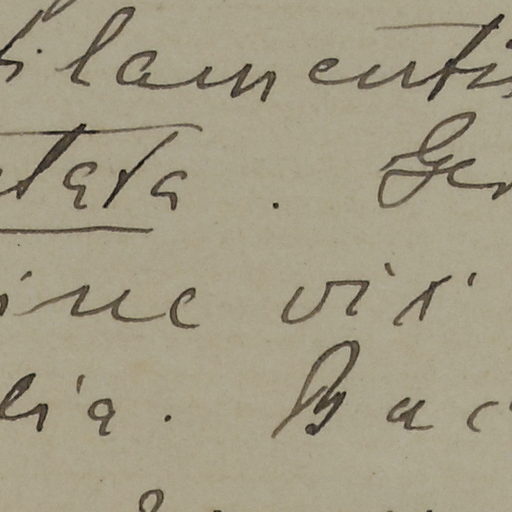 filamentis
tata. Ger
inc vix
lia. Bac